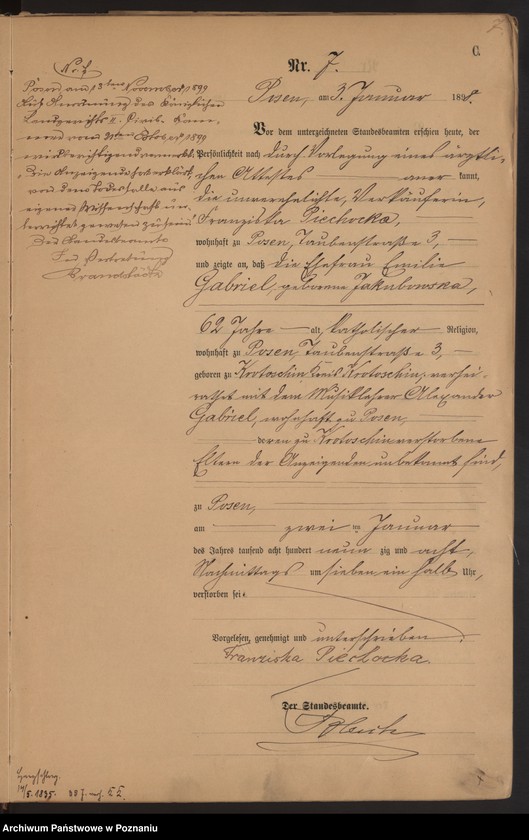 C.
Nr. 7.
Posen, am 3. Januar 1898.
No. 7
Posen am 13ten November 1899
Auf Anordnung des Königlichen
Landgerichts
vom 31ten Oktober 1899
wird berichtigend vermerkt,
die Anzeigende
von dem Todesfalle aus
eigener Wissenschaft un-
terrichtet gewesen zu sein
Der Standesbeamte
In Vertretung
Vor dem unterzeichneten Standesbeamten erschien heute, der
Persönlichkeit nach durch Vorlegung eines ärztli-
chen Attestes aner kannt,
die unverehelichte, Verkäuferin,
Franziska Piechocka,
wohnhaft zu Posen, Taubenstraße 3,
und zeigte an, daß die Ehefrau Emilie
Gabriel, geborene Jakubowska,
62 Jahre alt, katholischer Religion,
wohnhaft zu Posen, Taubenstraße 3,
geboren zu Krotoschin, Kreis Krotoschin, verhei-
rathet mit dem Musiklehrer Alexander
Gabriel, wohnhaft zu Posen,
deren zu Krotoschin verstorbene
Eltern der Anzeigenden unbekannt sind,
zu Posen,
am zwei ten Januar
des Jahres tausend acht hundert neun zig und acht
Nachmittags um sieben ein halb Uhr,
verstorben sei.
Vorgelesen, genehmigt und unterschrieben
Franziska Piechocka.
Der Standesbeamte.
Archiwum Państwowe w Poznaniu